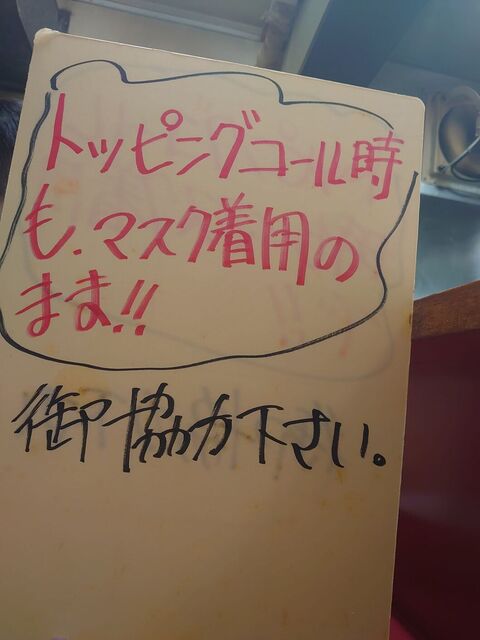 トッピングコール時
も、マスク着用の
まま!!
御協力下さい。